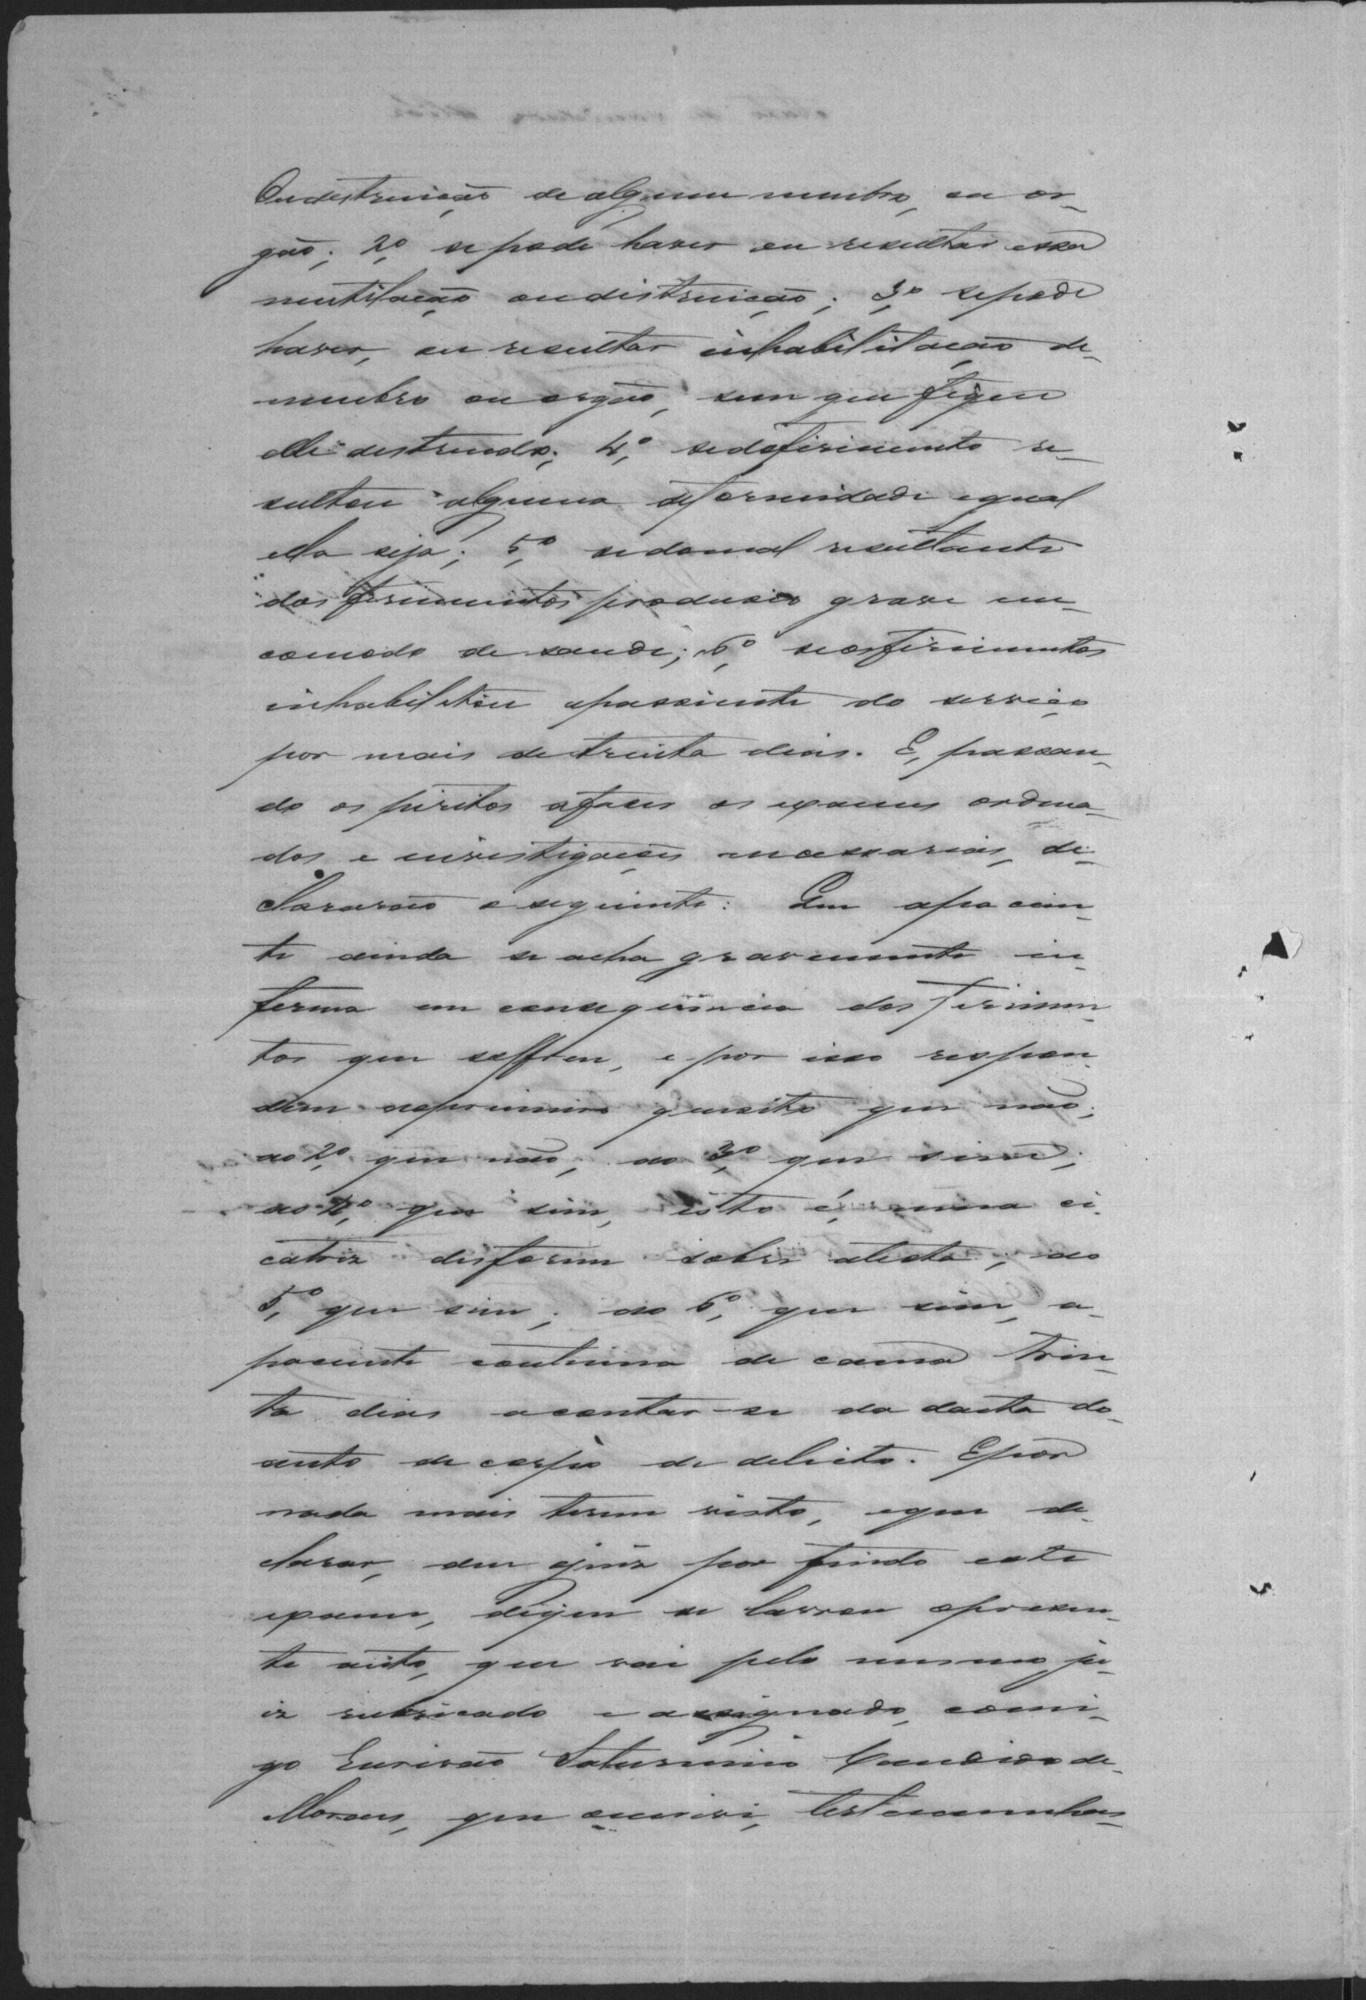 Ou destruição de algum membro, ou or-
gão; 2º, se pode haver ou resultar essa
mutilação ou distruição; 3º, se pode
haver, ou resultar inhabilitação de
membro ou orgão, sem que fique
elle destruido; 4º, se do firimento re-
sultou alguma deformidade e qual
ella seja; 5º, se do mal resultante
dos ferimentos produsio grave en-
comodo de saude; 6º, se os firimentos
inhabilitou apassiente do serviço
por mais de trinta dias. E, passan-
do os piritos afaser os exames ordena-
dos e investigações necessarias, de-
clararão o seguinte: Que apacien-
te ainda se acha gravemente in-
ferma em consequencia dos firimen-
tos que soffreu, e por isso respon-
dem ao primeiro quesito que não;
ao 2º, que não; ao 3º, que sim;
ao 4º, que sim, isto é, uma ci-
catriz disforme sobre a testa; ao
5º, que sim; ao 6º, que sim, a-
paciente continua de cama trin-
ta dias a contar-se da dacta do
auto de corpo de delicto. E por
nada mais terem visto, e que de-
clarar, deu o juiz por findo este
exame, de que se lavrou o presen-
te auto, que vai pelo mesmo ju-
iz rubricado e assignado, comi-
go Escrivão Saturnino Candido de
Moraes, que escrivi, testemunhas